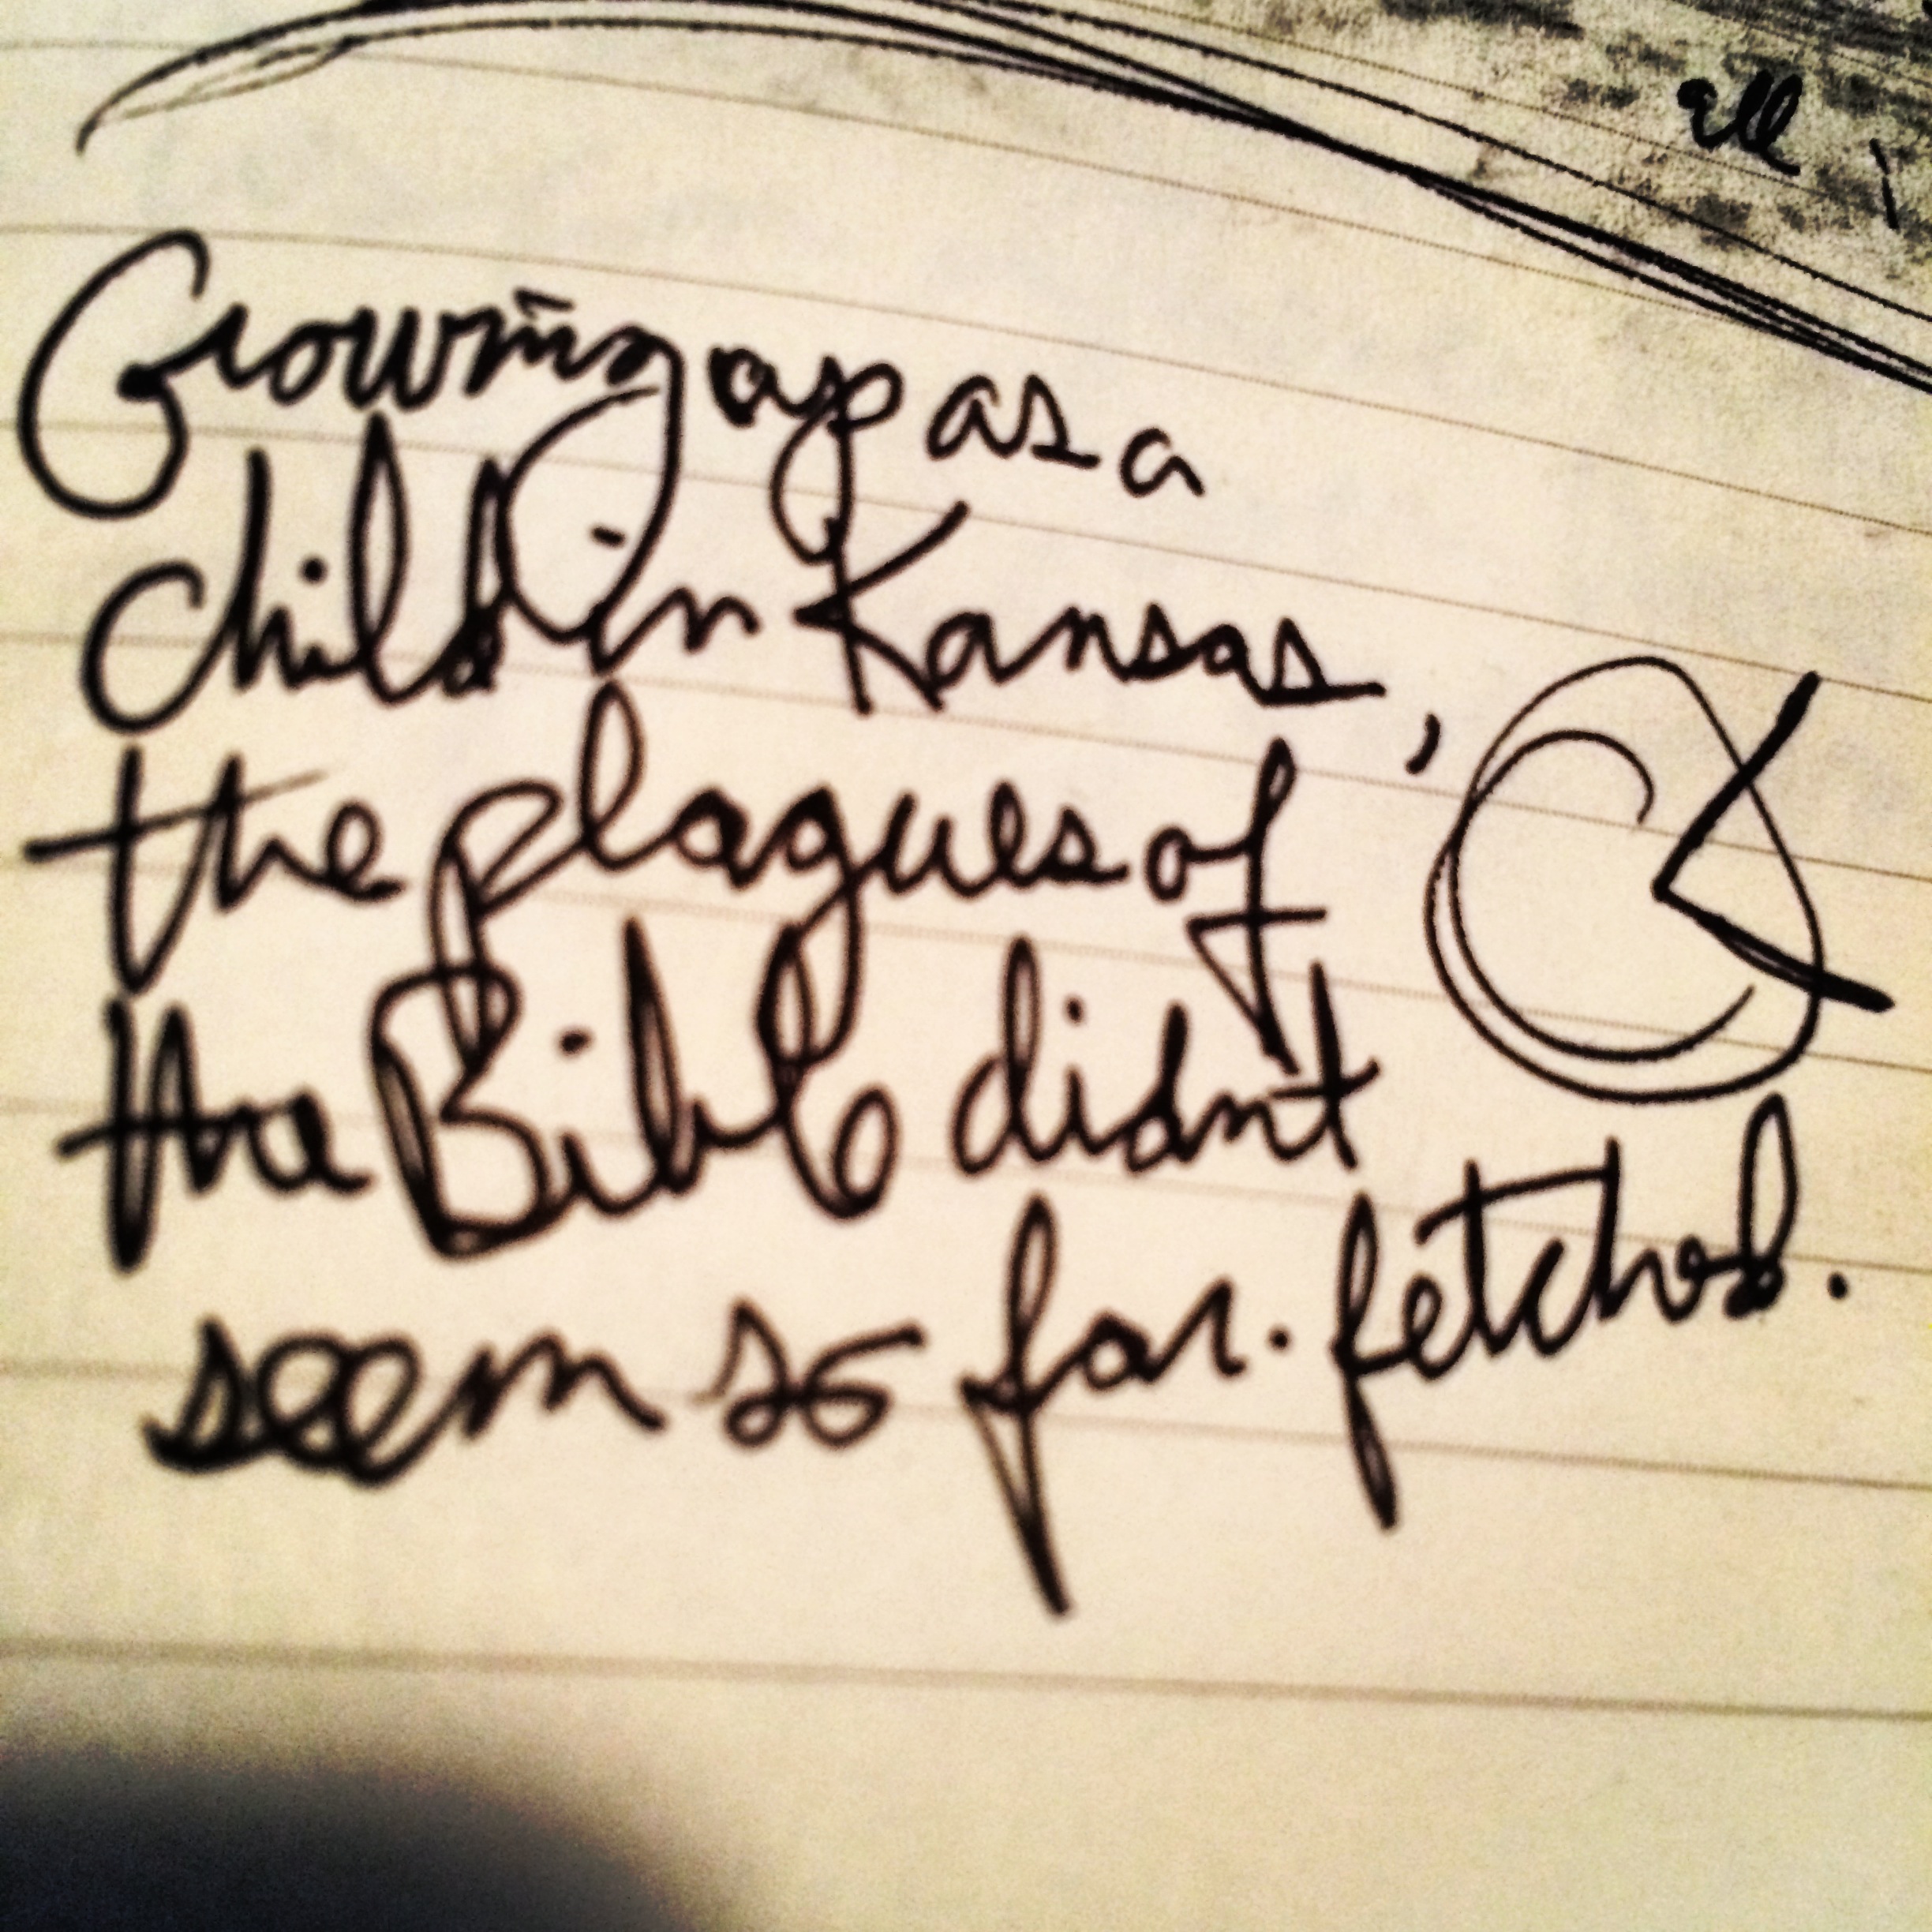 all
Growing up as a
child in Kansas,
the plagues of
the Bible didnt
seem so far-fetched.